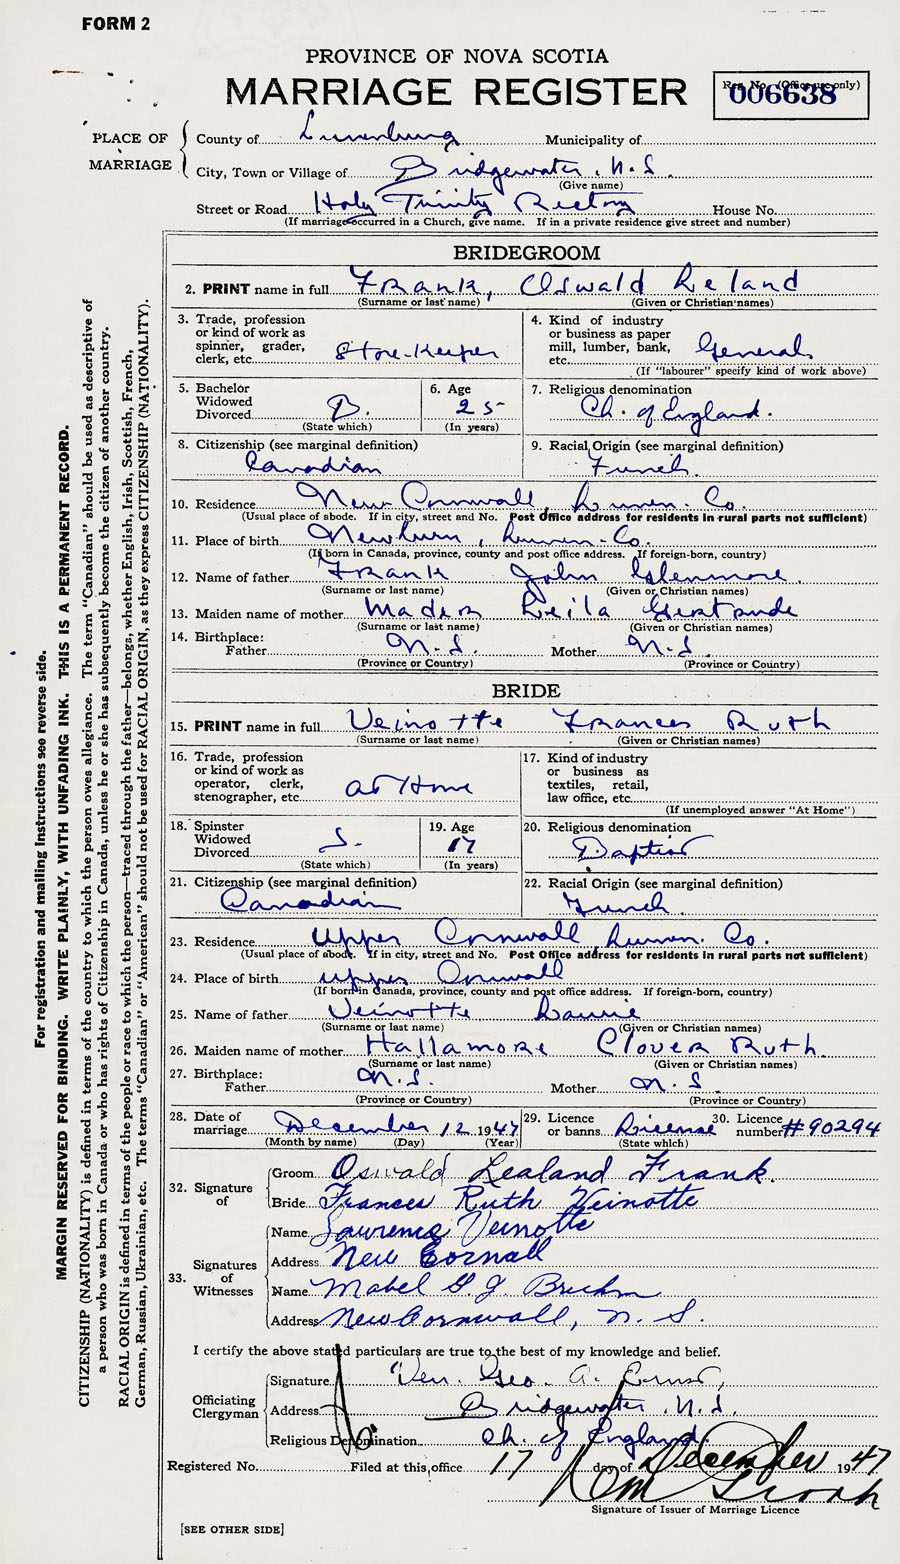 FORM 2
PROVINCE OF NOVA SCOTIA
MARRIAGE REGISTER
Reg. No. (Office use only)
006638
PLACE OF MARRIAGE
County of Lunenburg Municipality of
City, Town or Village of Bridgewater, N.S.
(Give name)
Street or Road Holy Trinity Rectory House No.
(If marriage occurred in a Church, give name. If in a private residence give street and number)
BRIDEGROOM
2. PRINT name in full Frank, Oswald Leland
(Surname or last name) (Given or Christian names)
3. Trade, profession or kind of work as spinner, grader, clerk, etc. Store-Keeper
4. Kind of industry or business as paper mill, lumber, bank, etc. General
(If "labourer" specify kind of work above)
5. Bachelor Widowed Divorced B.
(State which)
6. Age 25
(In years)
7. Religious denomination
Ch. of England.
8. Citizenship (see marginal definition)
Canadian
9. Racial Origin (see marginal definition)
French
10. Residence New Cornwall, Lunen. Co.
(Usual place of abode. If in city, street and No. Post Office address for residents in rural parts not sufficient)
11. Place of birth Newburn, Lunen. Co.
(If born in Canada, province, county and post office address. If foreign-born, country)
12. Name of father Frank John Glenmore.
(Surname or last name) (Given or Christian names)
13. Maiden name of mother Mader Leila Gertrude
(Surname or last name) (Given or Christian names)
14. Birthplace:
Father N.S. Mother N.S.
(Province or Country) (Province or Country)
BRIDE
15. PRINT name in full Veinotte Frances Ruth
(Surname or last name) (Given or Christian names)
16. Trade, profession or kind of work as operator, clerk, stenographer, etc. at Home
17. Kind of industry or business as textiles, retail, law office, etc.
(If unemployed answer "At Home")
18. Spinster Widowed Divorced S.
(State which)
19. Age 17
(In years)
20. Religious denomination
Baptist
21. Citizenship (see marginal definition)
Canadian
22. Racial Origin (see marginal definition)
French.
23. Residence Upper Cornwall, Lunen. Co.
(Usual place of abode. If in city, street and No. Post Office address for residents in rural parts not sufficient)
24. Place of birth Upper Cornwall
(If born in Canada, province, county and post office address. If foreign-born, country)
25. Name of father Veinotte
(Surname or last name) (Given or Christian names)
26. Maiden name of mother Hallamore Clover Ruth
(Surname or last name) (Given or Christian names)
27. Birthplace:
Father N.S. Mother N.S.
(Province or Country) (Province or Country)
28. Date of marriage December 12 1947
(Month by name) (Day) (Year)
29. Licence or banns License
(State which)
30. Licence number #90294
32. Signature of
Groom Oswald Lealand Frank.
Bride Frances Ruth Veinotte
33. Signatures of Witnesses
Name Lawrence Veinotte
Address New Cornall
Name Mabel G. J. Bruhm
Address New Cornwall, N. S.
I certify the above stated particulars are true to the best of my knowledge and belief.
Officiating Clergyman
Signature Ven. Geo. A. Ernst,
Address Bridgewater, N.S.
Religious Denomination Ch. of England.
Registered No. Filed at this office 17 day of December 1947
Signature of Issuer of Marriage Licence
[SEE OTHER SIDE]
For registration and mailing instructions see reverse side.
MARGIN RESERVED FOR BINDING. WRITE PLAINLY, WITH UNFADING INK. THIS IS A PERMANENT RECORD.
CITIZENSHIP (NATIONALITY) is defined in terms of the country to which the person owes allegiance. The term "Canadian" should be used as descriptive of
a person who was born in Canada or who has rights of Citizenship in Canada, unless he or she has subsequently become the citizen of another country.
RACIAL ORIGIN is defined in terms of the people or race to which the person—traced through the father—belongs, whether English, Irish, Scottish, French,
German, Russian, Ukrainian, etc. The terms "Canadian" or "American" should not be used for RACIAL ORIGIN, as they express CITIZENSHIP (NATIONALITY).